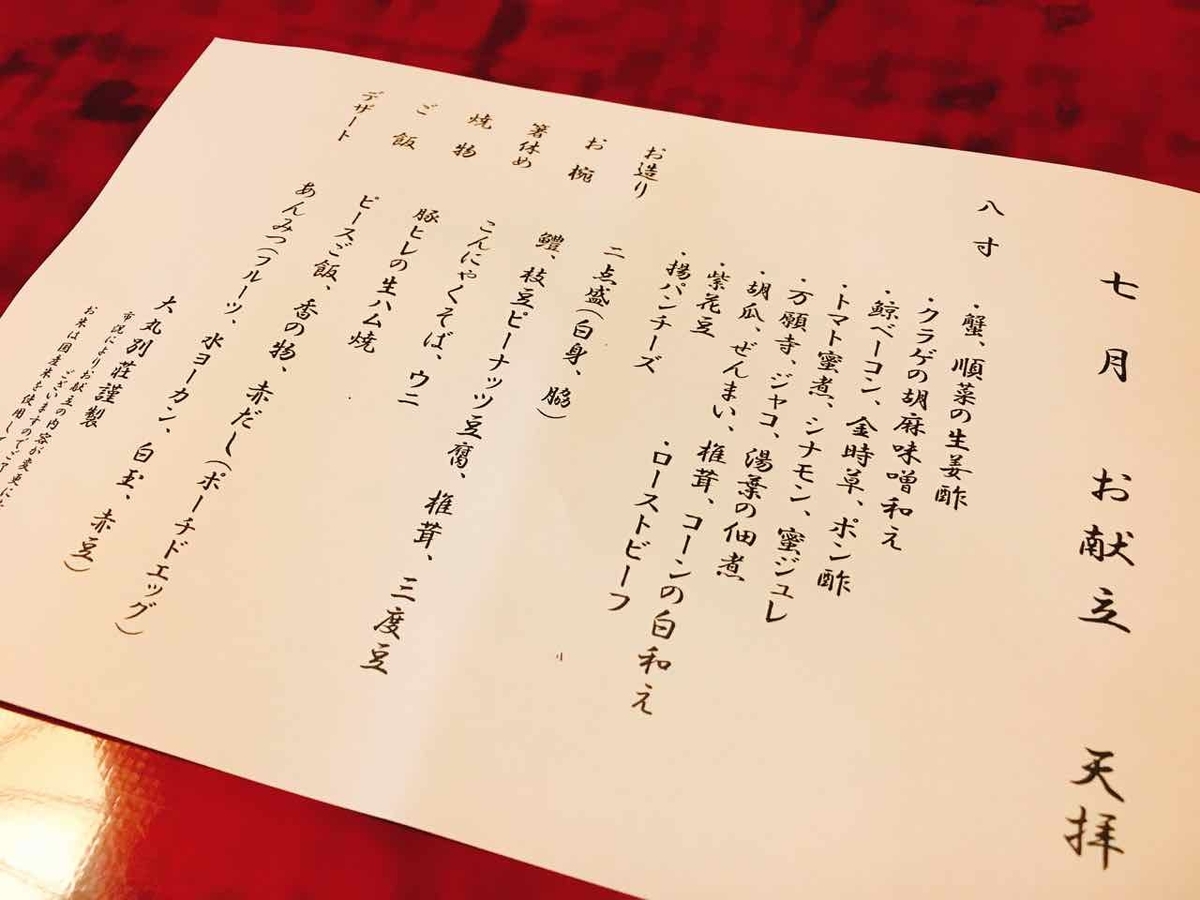 七月 お献立 天拝
八寸
・蟹、順菜の生姜酢
・クラゲの胡麻味噌和え
・鯨ベーコン、金時草、ポン酢
・トマト蜜煮、シナモン、蜜ジュレ
・万願寺、ジャコ、湯葉の佃煮
・胡瓜、ぜんまい、椎茸、コーンの白和え
・紫花豆 ・ローストビーフ
・揚パンチーズ
お造り 二点盛(白身、脇)
お椀 鱧、枝豆ピーナッツ豆腐、椎茸、三度豆
箸休め こんにゃくそば、ウニ
焼物 豚ヒレの生ハム焼
ご飯 ピースご飯、香の物、赤だし(ポーチドエッグ)
デザート あんみつ(フルーツ、水ヨーカン、白玉、赤豆)
大丸別荘謹製
市況によりお献立の内容が変更に
ございますのでご了
お米は国産米を使用し